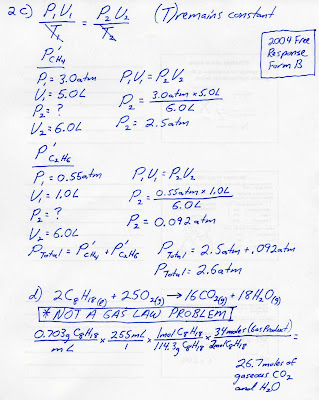 2c) P₁V₁/T₁ = P₂V₂/T₂ (T) remains constant
2004 Free
Response
Form B
P'CH₄
P₁ = 3.0atm P₁V₁ = P₂V₂
V₁ = 5.0L P₂ = 3.0atm x 5.0L / 6.0L
P₂ = ? P₂ = 2.5atm
V₂ = 6.0L
P'C₂H₆
P₁ = 0.55atm P₁V₁ = P₂V₂
V₁ = 1.0L P₂ = 0.55atm x 1.0L / 6.0L
P₂ = ? P₂ = 0.092atm
V₂ = 6.0L
PTotal = P'CH₄ + P'C₂H₆ PTotal = 2.5atm + .092atm
PTotal = 2.6atm
d) 2C₈H₁₈(g) + 25O₂(g) → 16CO₂(g) + 18H₂O(g)
* NOT A GAS LAW PROBLEM
0.703g C₈H₁₈/mL x 255mL/1 x 1mol C₈H₁₈/114.3g C₈H₁₈ x 34moles (Gas Product)/2mol C₈H₁₈ =
26.7 moles of
gaseous CO₂
and H₂O